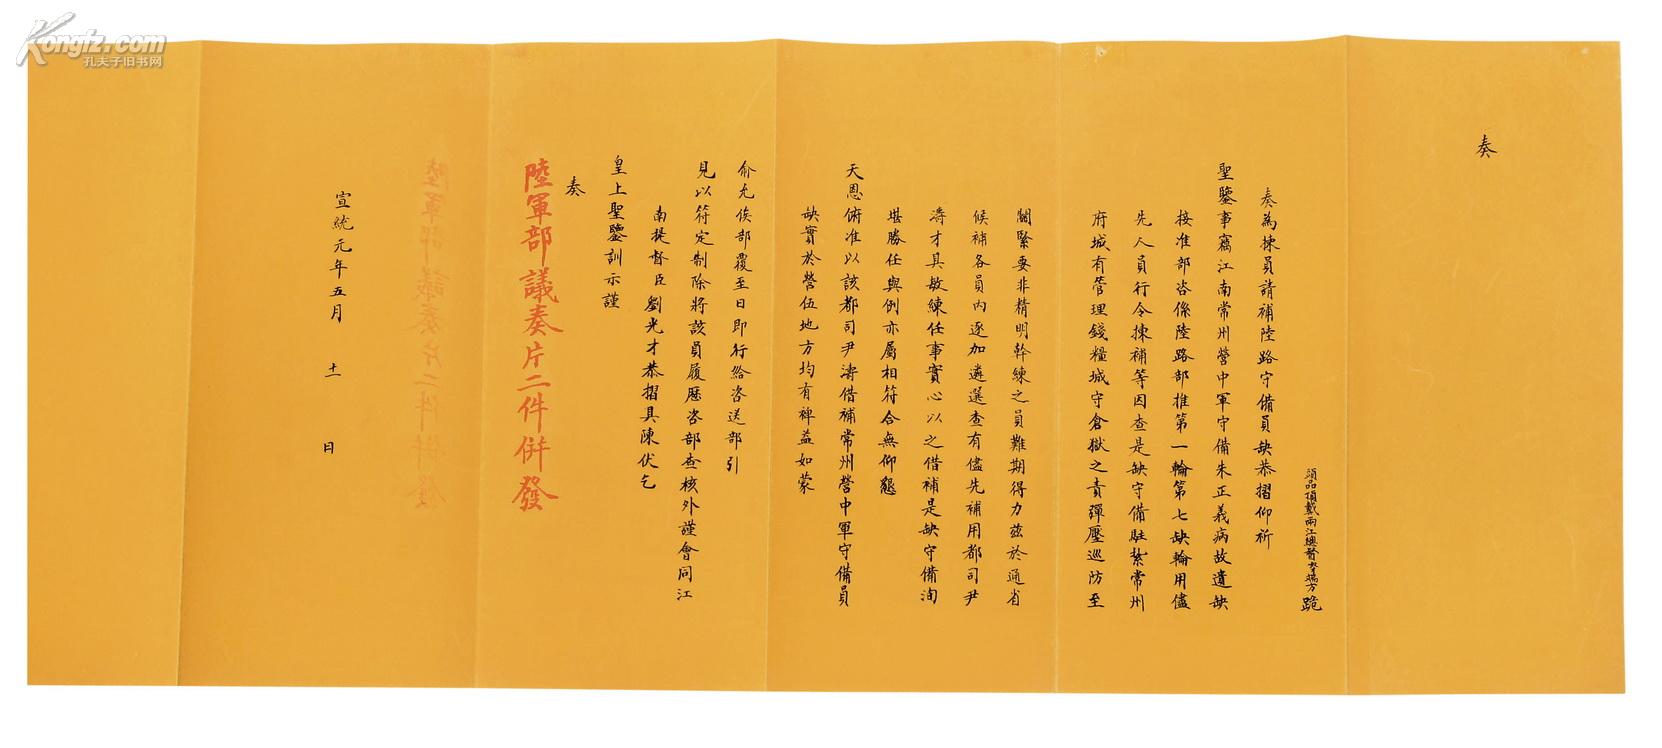 Kongfz.com
孔夫子旧书网
奏
頭品頂戴兩江總督奴才端方跪
奏為揀員請補陸路守備員缺恭摺仰祈
聖鑒事竊江南常州營中軍守備朱正義病故遺缺
接准部咨係陸路部推第一輪第七缺輪用儘
先人員行令揀補等因查是缺守備駐紮常州
府城有管理錢糧城守倉獄之責彈壓巡防至
關緊要非精明幹練之員難期得力茲於通省
候補各員內逐加遴選查有儘先補用都司尹
濤才具敏練任事實心以之借補是缺守備洵
堪勝任與例亦屬相符合無仰懇
天恩俯准以該都司尹濤借補常州營中軍守備員
缺實於營伍地方均有裨益如蒙
俞允俟部覆至日即行給咨送部引
見以符定制除將該員履歷咨部查核外謹會同江
南提督臣劉光才恭摺具陳伏乞
皇上聖鑒訓示謹
奏
陸軍部議奏片二件併發
宣統元年五月 十一 日